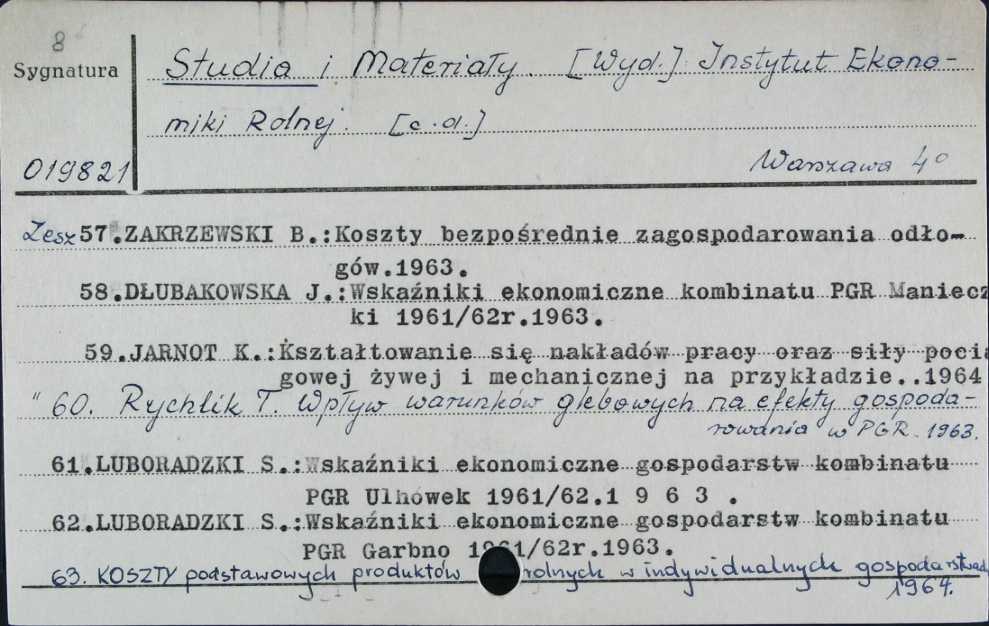 8
Sygnatura
Studia i Materiały. [Wyd.] Instytut Ekono-
miki Rolnej. [c.d.]
019821
Warszawa 4°
Zesz 57.ZAKRZEWSKI B.:Koszty bezpośrednie zagospodarowania odło-
gów.1963.
58.DŁUBAKOWSKA J.:Wskaźniki ekonomiczne kombinatu PGR Maniecz
ki 1961/62r.1963.
59.JARNOT K.:Kształtowanie się nakładów pracy oraz siły pocią
gowej żywej i mechanicznej na przykładzie..1964
" 60. Rychlik T. Wpływ warunków glebowych na efekty gospoda-
rowania w PGR. 1963.
61.LUBORADZKI S.:Wskaźniki ekonomiczne gospodarstw kombinatu
PGR Ulhówek 1961/62.1 9 6 3 .
62.LUBORADZKI S.:Wskaźniki ekonomiczne gospodarstw kombinatu
PGR Garbno 1961/62r.1963.
63. KOSZTY podstawowych produktów rolnych w indywidualnych gospodarstwach
1964.